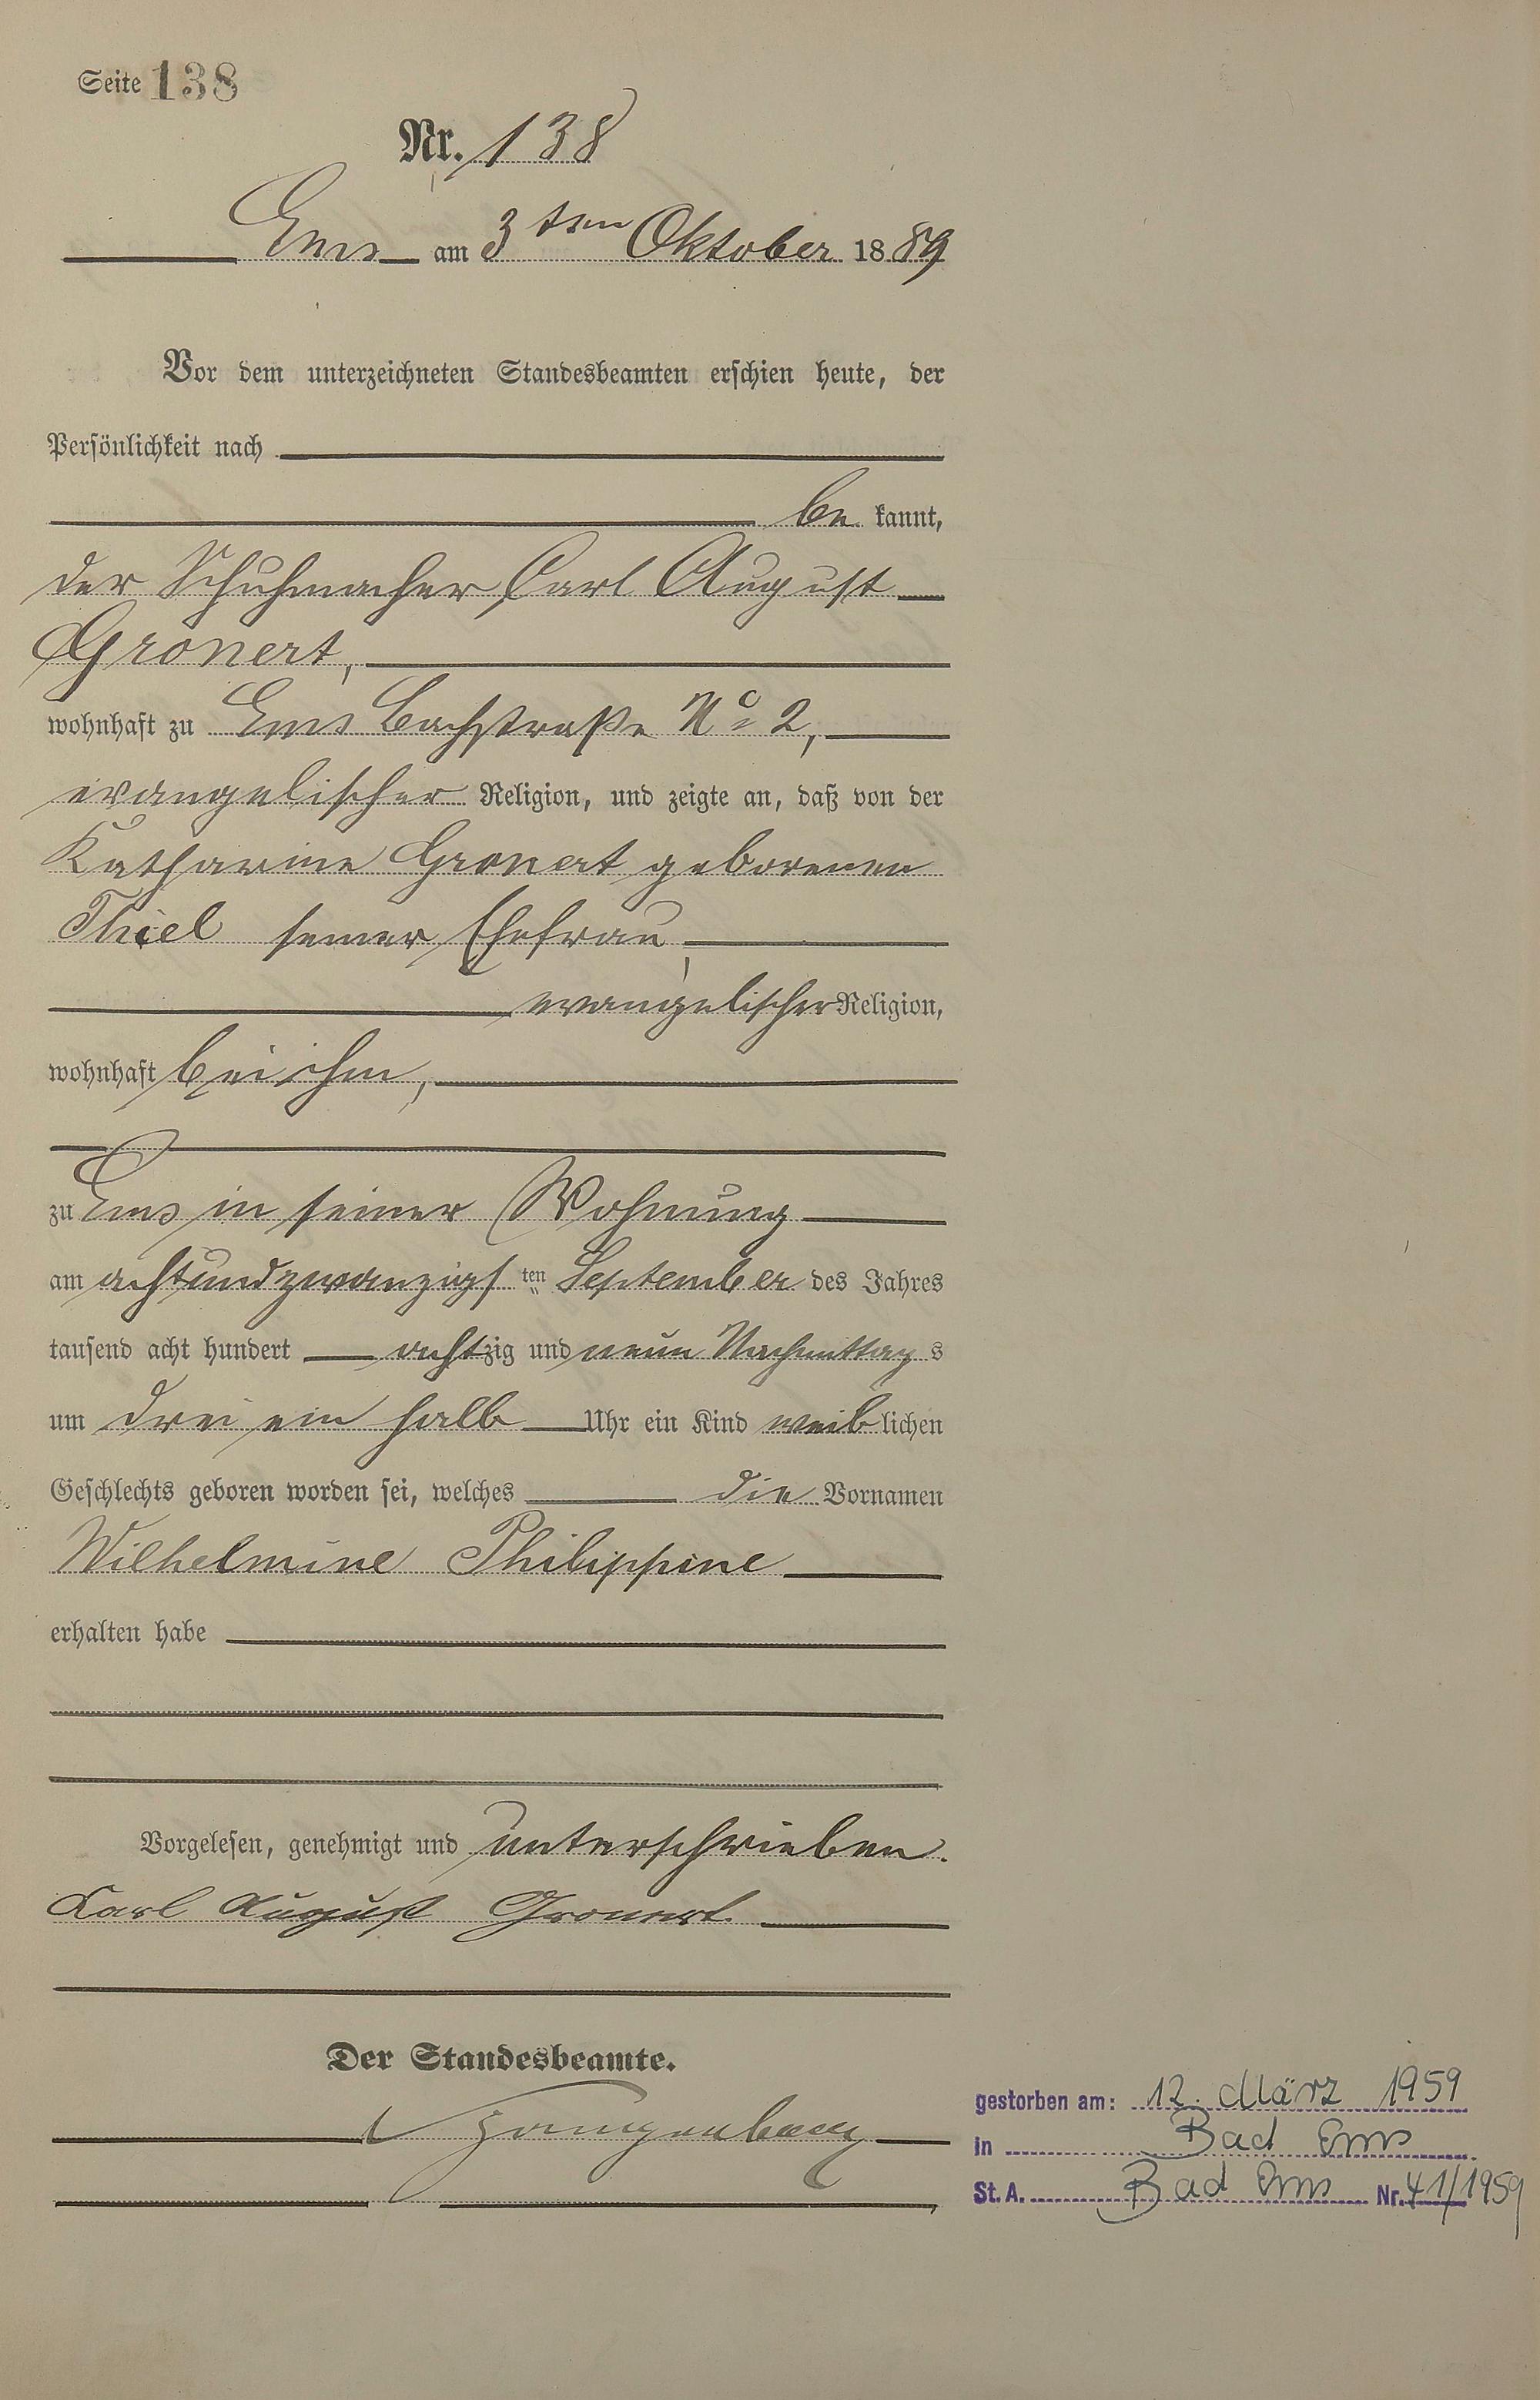 Seite 138
Nr. 138
Ems am 3ten Oktober 1889
Vor dem unterzeichneten Standesbeamten erschien heute, der
Persönlichkeit nach
be kannt,
der Schuhmacher Carl August
Gronert,
wohnhaft zu Ems Bachstraße No 2,
evangelischer Religion, und zeigte an, daß von der
Katharine Gronert geborenen
Thiel seiner Ehefrau,
evangelischer Religion,
wohnhaft bei ihm,
zu Ems in seiner Wohnung
am achtundzwanzigsten September des Jahres
tausend acht hundert achtzig und neun Nachmittags
um drei ein halb Uhr ein Kind weiblichen
Geschlechts geboren worden sei, welches die Vornamen
Wilhelmine Philippine
erhalten habe
Vorgelesen, genehmigt und unterschrieben.
Karl August Gronert
Der Standesbeamte.
gestorben am: 12. März 1959
in Bad Ems
St. A. Bad Ems Nr. 41/1959